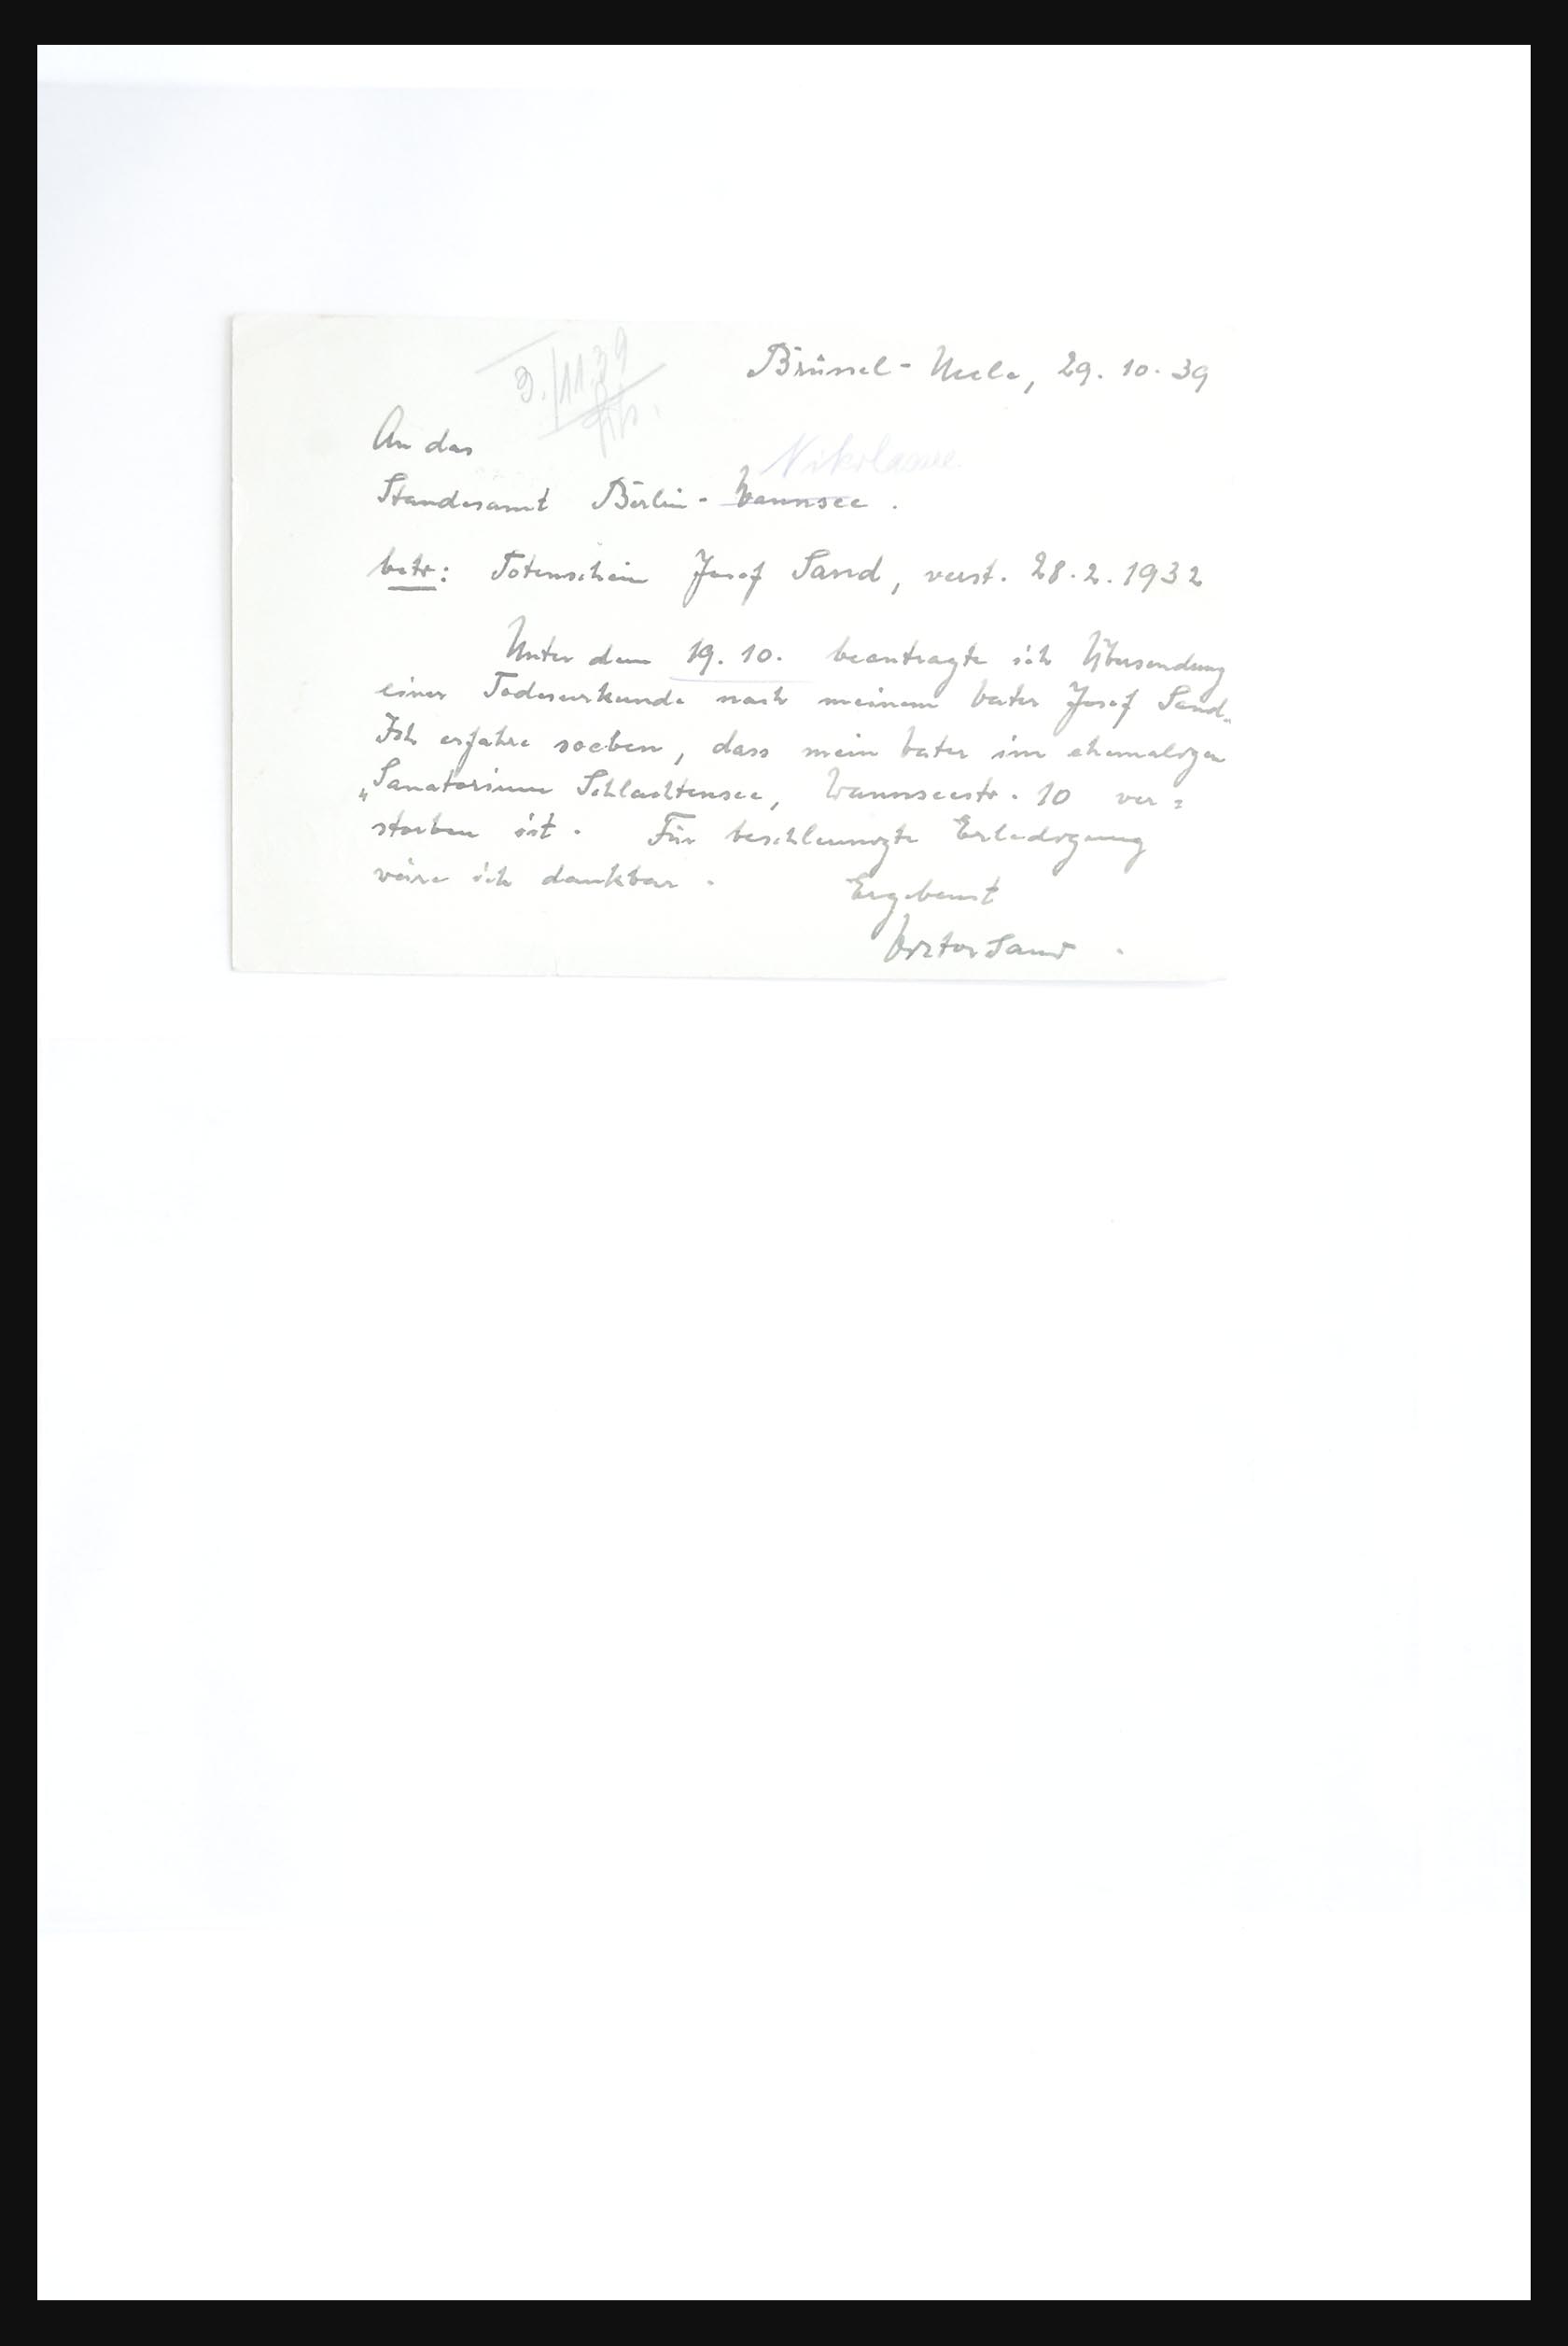 9./11.39
Brüssel - Uccle, 29. 10. 39
An das
Nikolassee
Standesamt Berlin - Wannsee .
betr: Totenschein Josef Sand, verst. 28. 2. 1932
Unter dem 19. 10. beantragte ich Übersendung
einer Todesurkunde nach meinem Vater Josef Sand.
Ich erfahre soeben, dass mein Vater im ehemaligen
„Sanatorium Schlachtensee, Wannseestr. 10 ver=
storben ist. Für beschleunigte Erledigung
wäre ich dankbar .
Ergebenst
Viktor Sand .